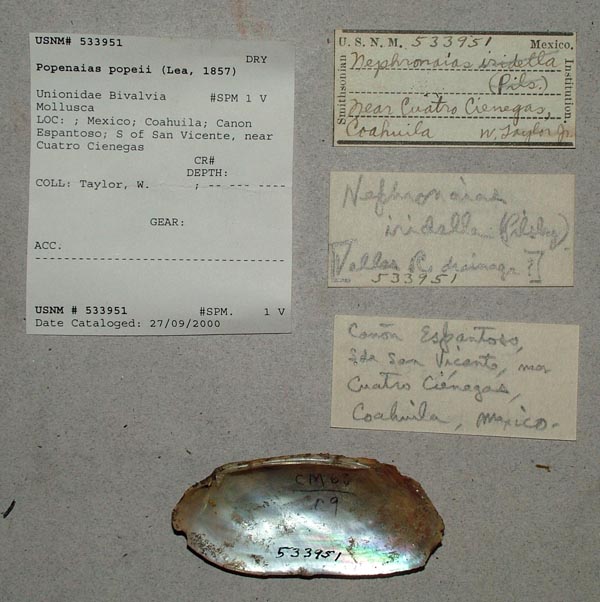 USNM# 533951
DRY
Popenaias popeii (Lea, 1857)
Unionidae Bivalvia #SPM 1 V
Mollusca
LOC: ; Mexico; Coahuila; Canon
Espantoso; S of San Vicente, near
Cuatro Cienegas
CR#
DEPTH:
COLL: Taylor, W. ; -- --- ----
GEAR:
ACC.
USNM # 533951 #SPM. 1 V
Date Cataloged: 27/09/2000
U. S. N. M. 533951 Mexico.
Smithsonian
Institution.
Nephronaias iridella
(Pils.)
Near Cuatro Cienegas,
Coahuila W. Taylor Jr.
Nephronaias
iridella (Pilsby)
[Valles R. drainage?]
533951
Cañon Espantoso,
San Vicente, near
Cuatro Ciénegas,
Coahuila, Mexico.
CM60
19
533951